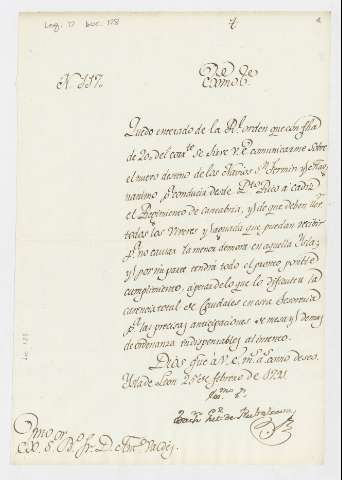 Leg. 17 doc. 128
N.º 117.
Exmo. S.or
Quedo enterado de la R.l orden que con fha
de 20 del corr.te se sirve V.E. comunicarme sobre
el nuevo destino de los Navios S.n Fermin y
p.a conducir desde Pto. Rico a Cadiz
el Regimiento de Cantabria, y de que deben llevar
todos los viveres y aguada que puedan recibir
p.a no causar la menor demora en aquella Isla;
y por mi parte tendrá todo el pronto posible
cumplimiento, apesar de lo que lo dificulta la
carencia total de Caudales en esta
p.a las precisas anticipaciones de mesa y demas
de ordenanza indispensables al intento.
Dios gue. a V.E. m.s a.s como deseo.
Isla de Leon 25 de febrero de
Exmo. S.or
Exmo. S.or B.o Fr. D. Ant.o Valdés.